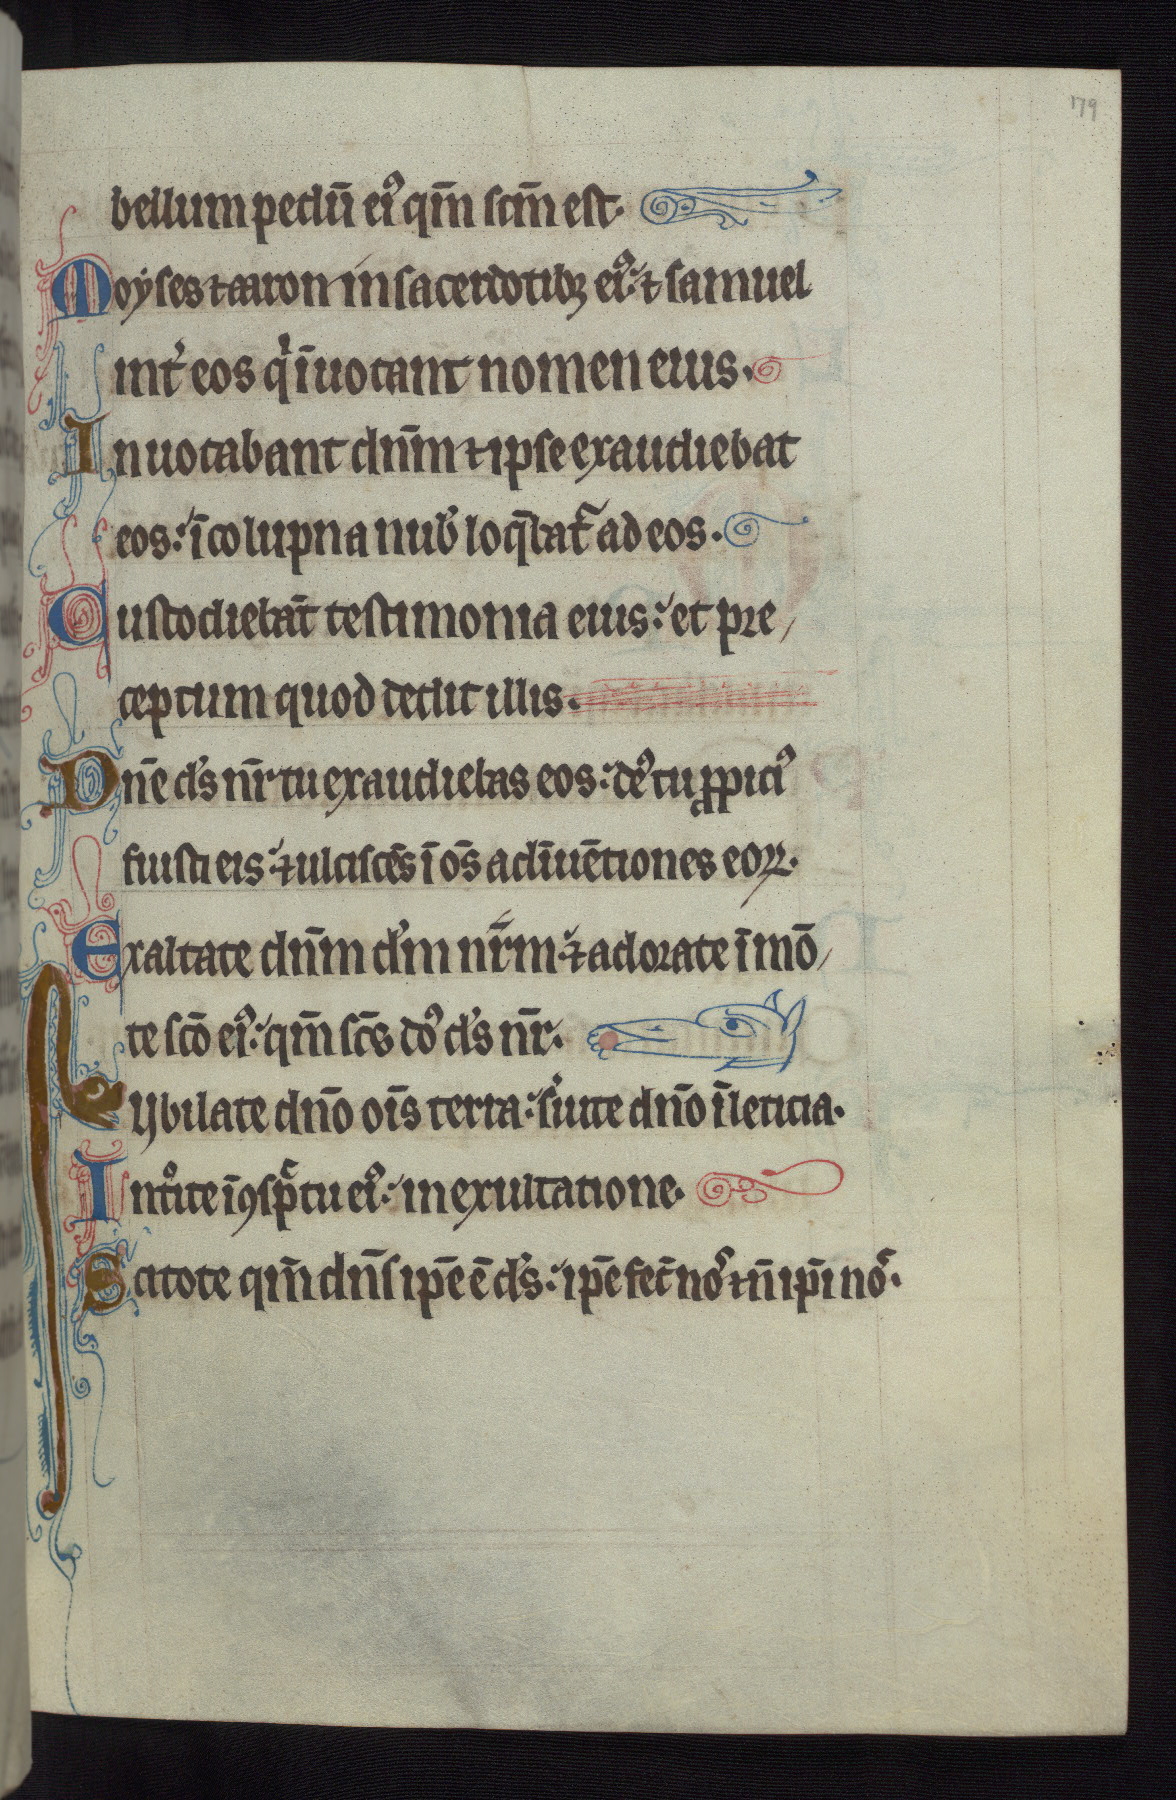 179
bellum pedū eiꝰ qm̄ scm̄ est.
Moẏses ⁊ aaron in sacerdotibꝫ eiꝰ: ⁊ samuel
int̾ eos qͥ īuocant nomen eius.
Inuocabant dn̄m ⁊ ipse exaudiebat
eos: ī colupna nub̾ loq̄bat᷑ ad eos.
Custodiebāt testimonia eius: et pre/
ceptum quod dedit illis.
Dn̄e ds̄ nr̄ tu exaudiebas eos: deꝰ tu ꝓpiciꝰ
fuisti eis: ⁊ ulciscēs ī oēs adīuētiones eoꝝ.
Exaltate dn̄m dm̄ nr̄m: ⁊ adorate ī mō/
te scō eiꝰ: qm̄ scs̄ dꝰ ds̄ nr̄.
Iybilate dn̄o oīs terra: s̾uite dn̄o ī leticia.
Int̾ite ī ꝯsp̄tu eiꝰ: in exultatione.
Scitote qm̄ dn̄s ip̄e ē ds̄: ip̄e fec̄ noˢ ⁊ n̄ ip̄i noˢ.